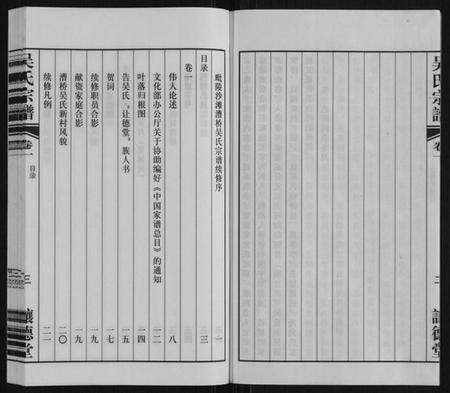 吴氏宗谱
卷一
二
让德堂
毗陵沙滩漕桥吴氏宗谱续修序 一
目录 三
卷一
伟人论述 八
文化部办公厅关于协助编好《中国家谱总目》的通知 一二
叶落归根图 一四
告吴氏“让德堂”族人书 一五
贺词 一七
续修职员合影 一九
献资家庭合影 一九
漕桥吴氏新村风貌 二〇
续修凡例 二一
吴氏宗谱
卷一
目录
三
让德堂